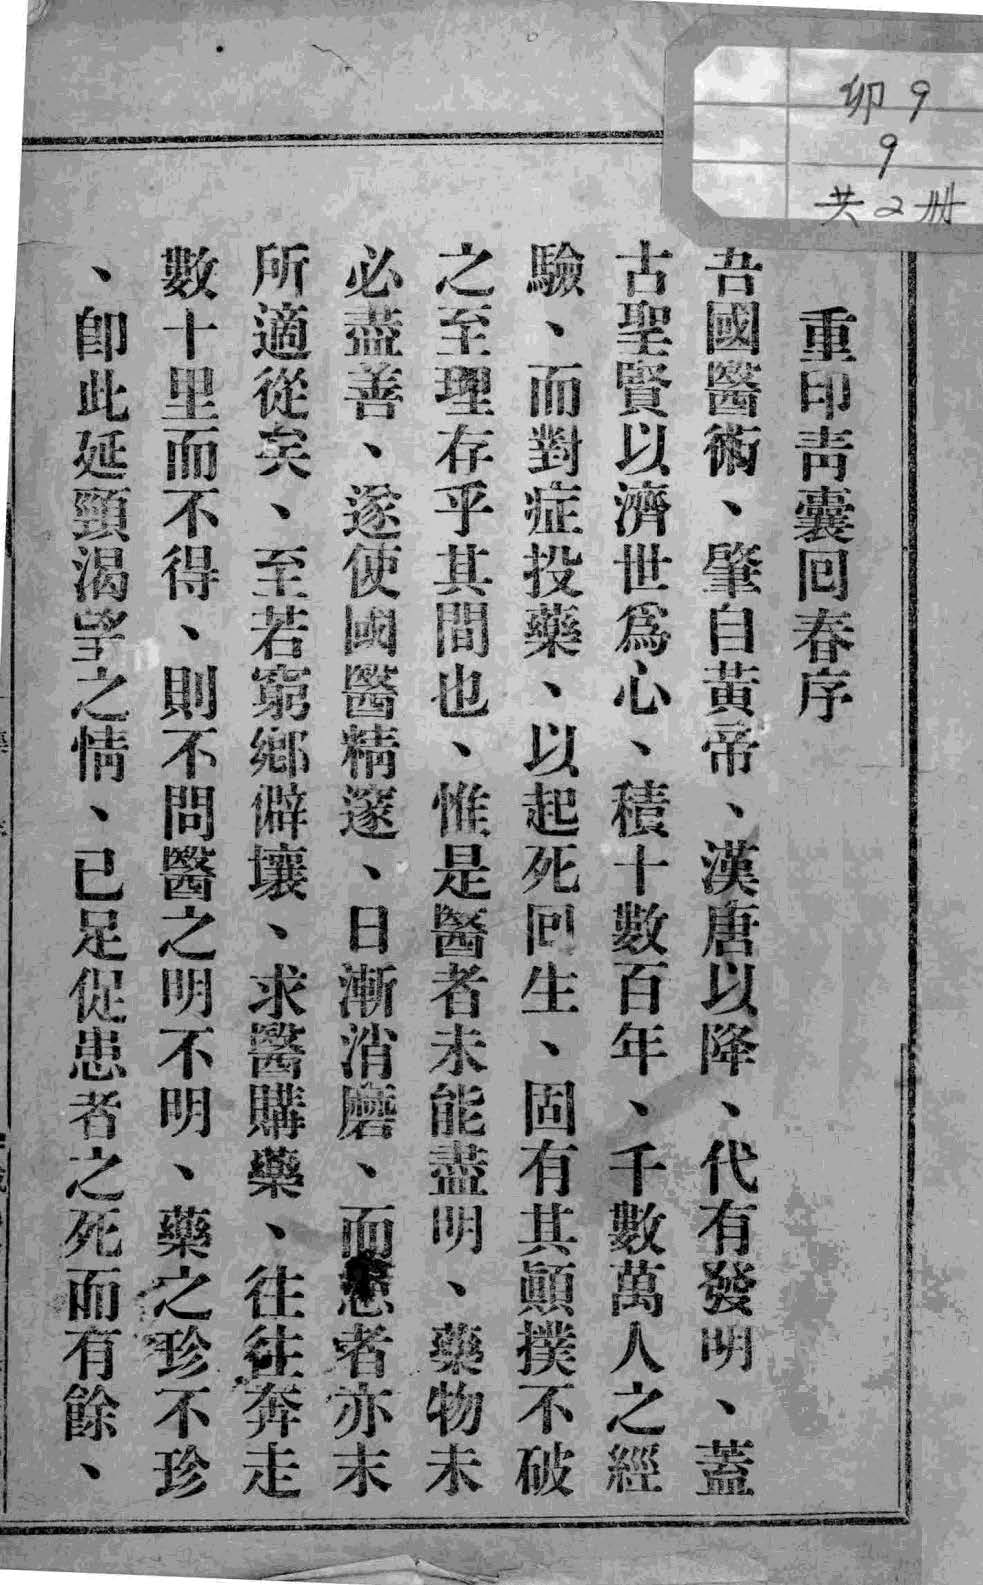 卯9
9
共2册
重印靑囊回春序
吾國醫術、肇自黃帝、漢唐以降、代有發明、蓋
古聖賢以濟世爲心、積十數百年、千數萬人之經
驗、而對症投藥、以起死回生、固有其顚撲不破
之至理存乎其間也、惟是醫者未能盡明、藥物未
必盡善、遂使國醫精邃、日漸消磨、而患者亦末
所適從矣、至若窮鄉僻壤、求醫購藥、往往奔走
數十里而不得、則不問醫之明不明、藥之珍不珍
、卽此延頸渴望之情、已足促患者之死而有餘、